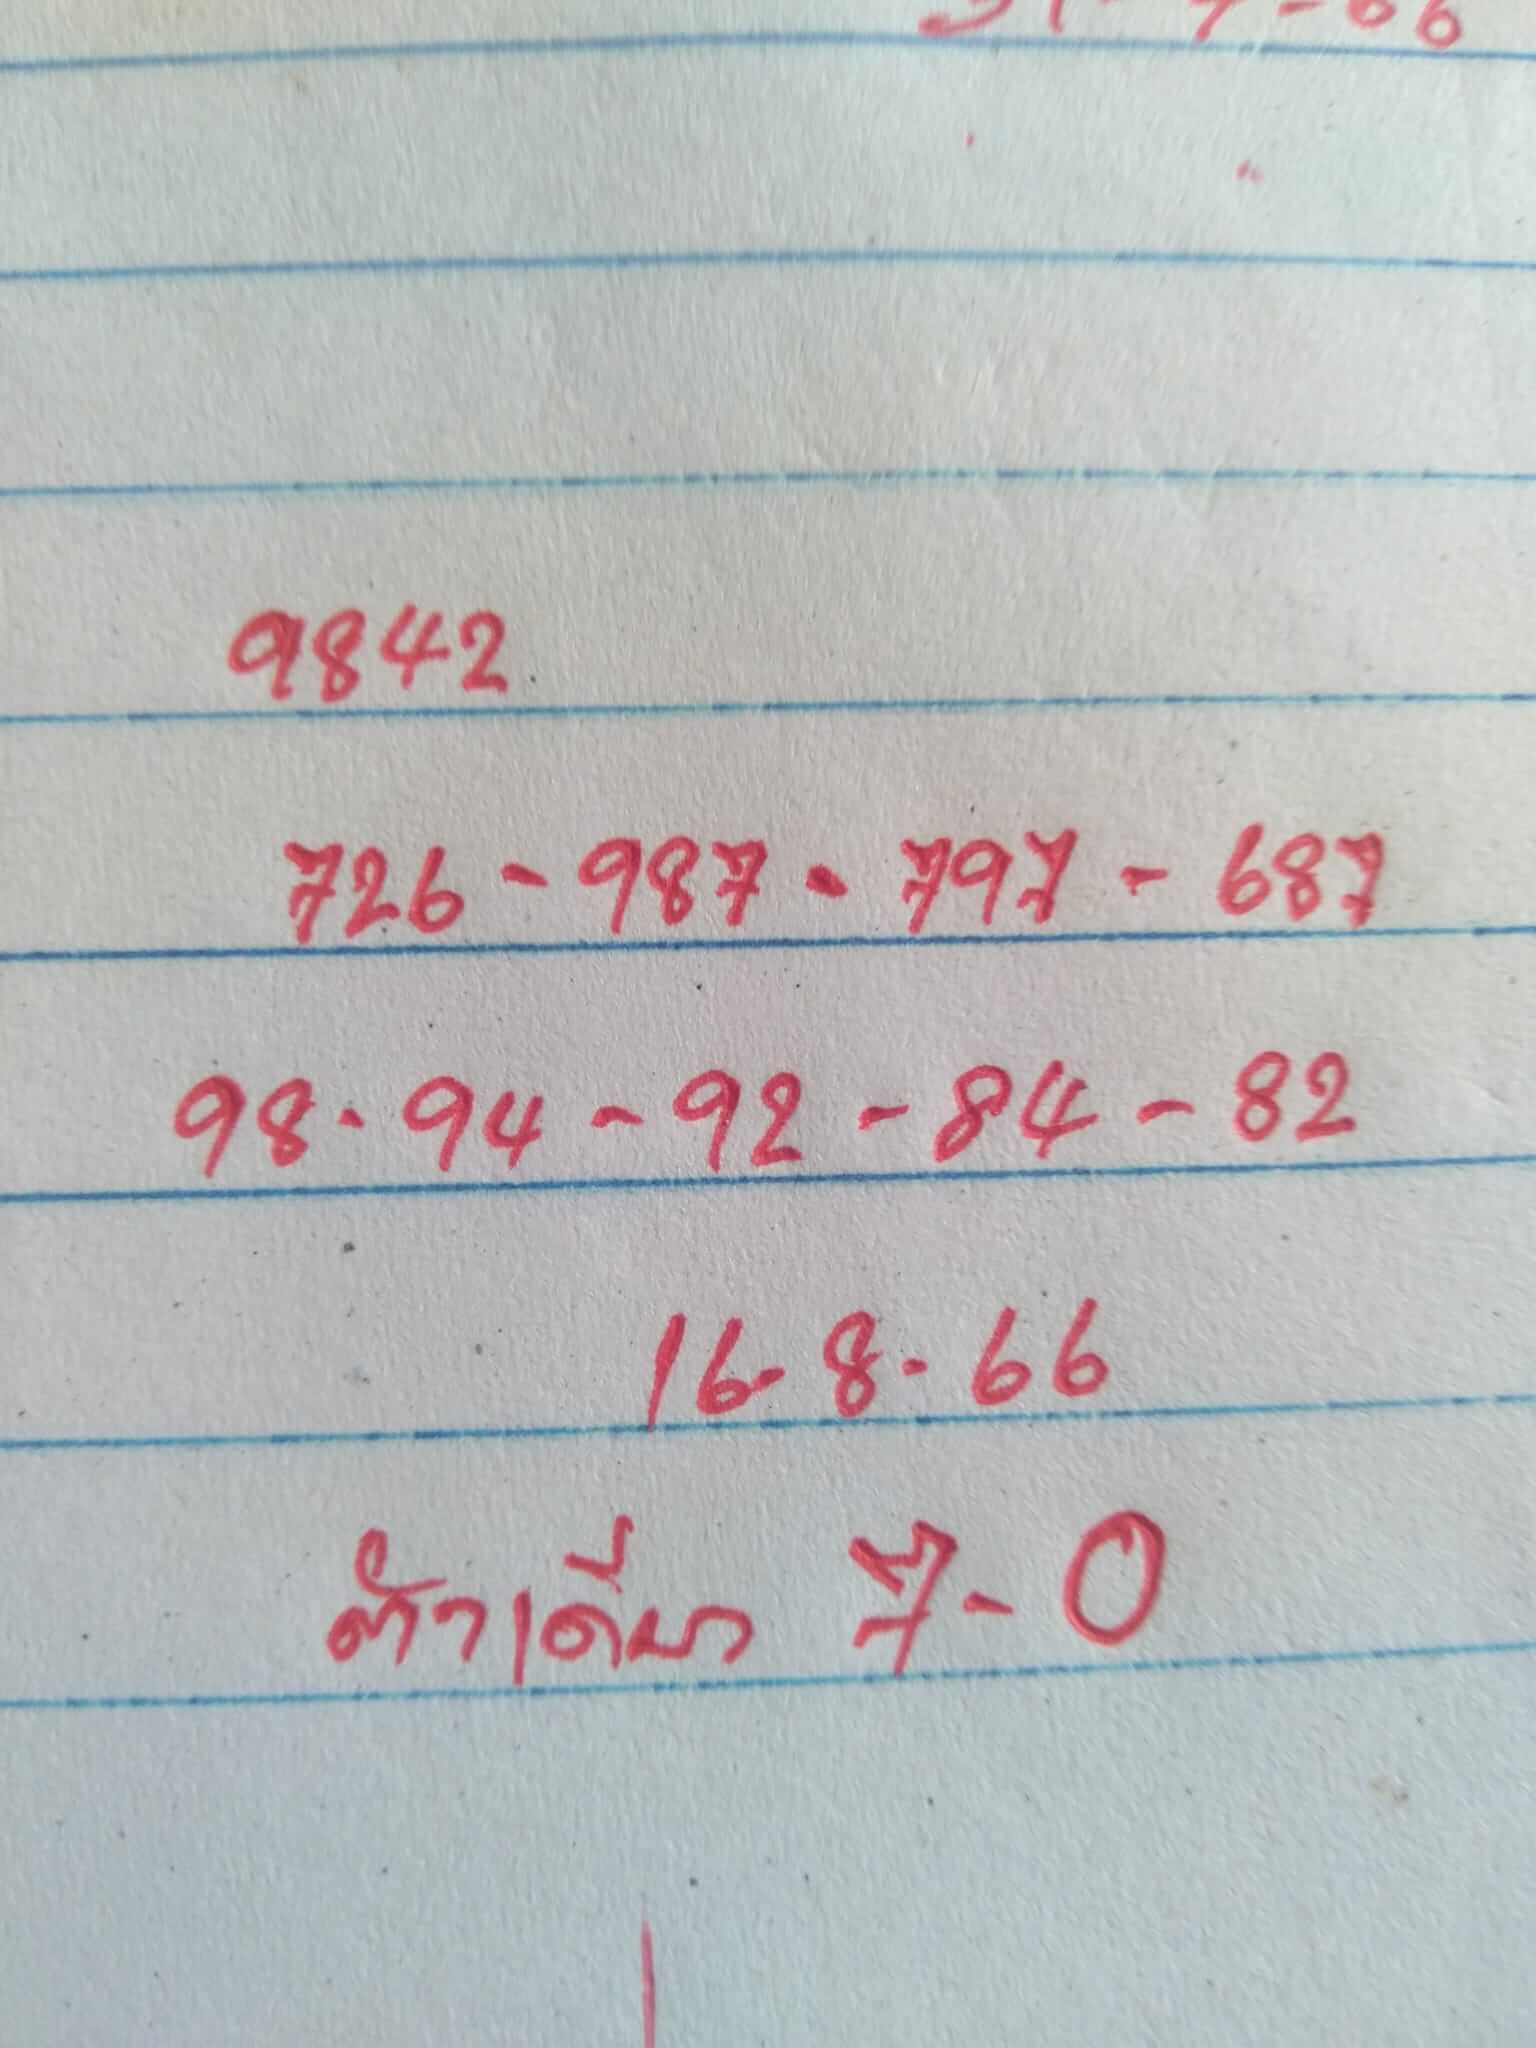 9842
726 - 987 - 797 - 687
98 - 94 - 92 - 84 - 82
16-8-66
ตัวเดี่ยว 7-0